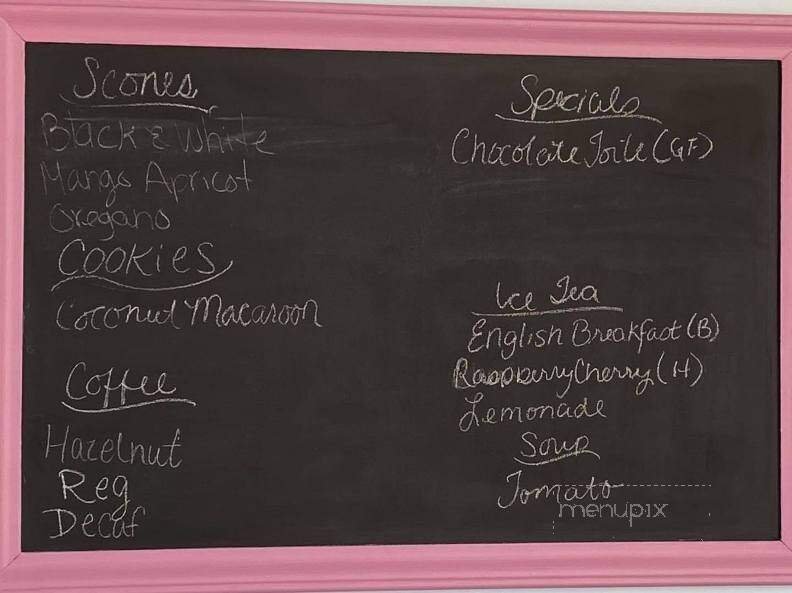 Scones
Black & White
Mango Apricot
Oregano
Cookies
Coconut Macaroon
Coffee
Hazelnut
Reg
Decaf
Specials
Chocolate Toile (GF)
Ice Tea
English Breakfast (B)
Raspberry Cherry (H)
Lemonade
Soup
Tomato
menupix